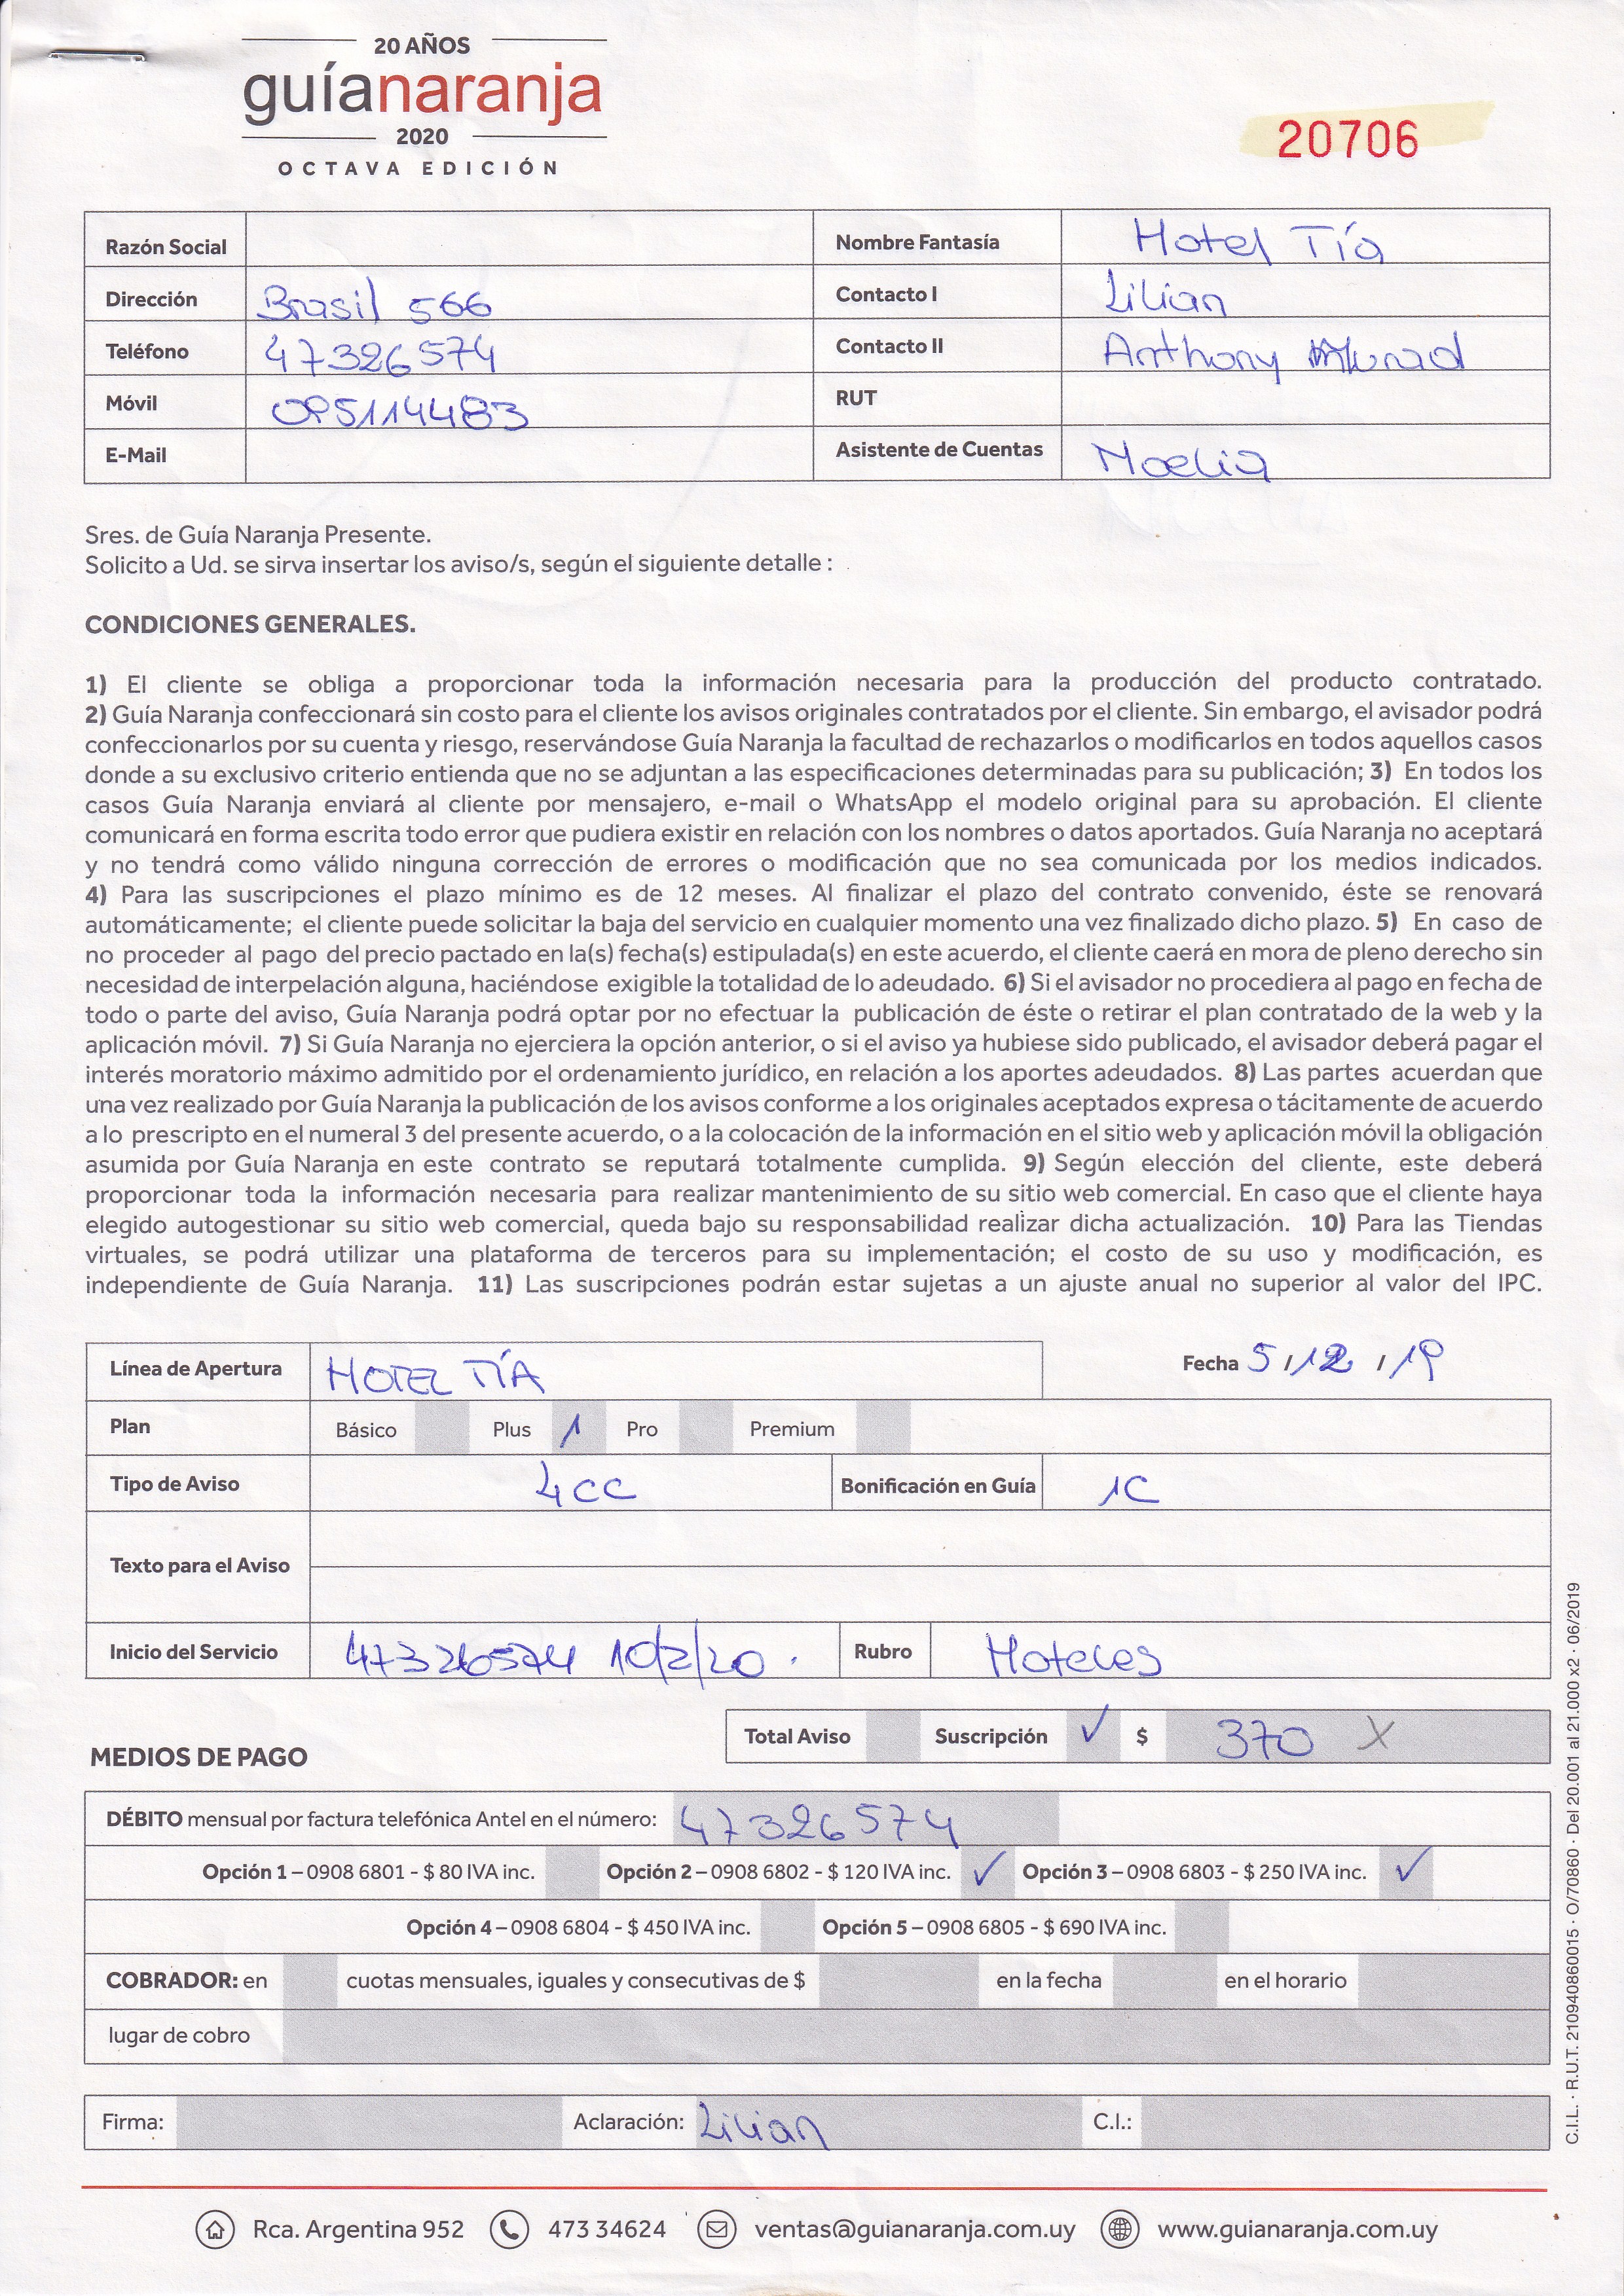 20 AÑOS
guíanaranja
2020
OCTAVA EDICIÓN
20706
Razón Social
Nombre Fantasía Hotel Tía
Dirección Brasil 566
Contacto I Lilian
Teléfono 47326574
Contacto II Anthony
Móvil 095114483
RUT
E-Mail
Asistente de Cuentas Noelia
Sres. de Guía Naranja Presente.
Solicito a Ud. se sirva insertar los aviso/s, según el siguiente detalle :
CONDICIONES GENERALES.
1) El cliente se obliga a proporcionar toda la información necesaria para la producción del producto contratado.
2) Guía Naranja confeccionará sin costo para el cliente los avisos originales contratados por el cliente. Sin embargo, el avisador podrá
confeccionarlos por su cuenta y riesgo, reservándose Guía Naranja la facultad de rechazarlos o modificarlos en todos aquellos casos
donde a su exclusivo criterio entienda que no se adjuntan a las especificaciones determinadas para su publicación; 3) En todos los
casos Guía Naranja enviará al cliente por mensajero, e-mail o WhatsApp el modelo original para su aprobación. El cliente
comunicará en forma escrita todo error que pudiera existir en relación con los nombres o datos aportados. Guía Naranja no aceptará
y no tendrá como válido ninguna corrección de errores o modificación que no sea comunicada por los medios indicados.
4) Para las suscripciones el plazo mínimo es de 12 meses. Al finalizar el plazo del contrato convenido, éste se renovará
automáticamente; el cliente puede solicitar la baja del servicio en cualquier momento una vez finalizado dicho plazo. 5) En caso de
no proceder al pago del precio pactado en la(s) fecha(s) estipulada(s) en este acuerdo, el cliente caerá en mora de pleno derecho sin
necesidad de interpelación alguna, haciéndose exigible la totalidad de lo adeudado. 6) Si el avisador no procediera al pago en fecha de
todo o parte del aviso, Guía Naranja podrá optar por no efectuar la publicación de éste o retirar el plan contratado de la web y la
aplicación móvil. 7) Si Guía Naranja no ejerciera la opción anterior, o si el aviso ya hubiese sido publicado, el avisador deberá pagar el
interés moratorio máximo admitido por el ordenamiento jurídico, en relación a los aportes adeudados. 8) Las partes acuerdan que
una vez realizado por Guía Naranja la publicación de los avisos conforme a los originales aceptados expresa o tácitamente de acuerdo
a lo prescripto en el numeral 3 del presente acuerdo, o a la colocación de la información en el sitio web y aplicación móvil la obligación
asumida por Guía Naranja en este contrato se reputará totalmente cumplida. 9) Según elección del cliente, este deberá
proporcionar toda la información necesaria para realizar mantenimiento de su sitio web comercial. En caso que el cliente haya
elegido autogestionar su sitio web comercial, queda bajo su responsabilidad realizar dicha actualización. 10) Para las Tiendas
virtuales, se podrá utilizar una plataforma de terceros para su implementación; el costo de su uso y modificación, es
independiente de Guía Naranja. 11) Las suscripciones podrán estar sujetas a un ajuste anual no superior al valor del IPC.
Línea de Apertura HOTEL TÍA
Fecha 5/12/19
Plan Básico Plus 1 Pro Premium
Tipo de Aviso 4CC Bonificación en Guía 1C
Texto para el Aviso
Inicio del Servicio 47326574 10/2/20. Rubro Hoteles
Total Aviso Suscripción ✓ $ 370 X
MEDIOS DE PAGO
DÉBITO mensual por factura telefónica Antel en el número: 47326574
Opción 1 – 0908 6801 - $ 80 IVA inc. Opción 2 – 0908 6802 - $ 120 IVA inc. ✓ Opción 3 – 0908 6803 - $ 250 IVA inc. ✓
Opción 4 – 0908 6804 - $ 450 IVA inc. Opción 5 – 0908 6805 - $ 690 IVA inc.
COBRADOR: en cuotas mensuales, iguales y consecutivas de $ en la fecha en el horario
lugar de cobro
Firma: Aclaración: Lilian C.I.:
Rca. Argentina 952 473 34624 ventas@guianaranja.com.uy www.guianaranja.com.uy
C.I.L. · R.U.T. 210940860015 · O/70860 · Del 20.001 al 21.000 x2 · 06/2019